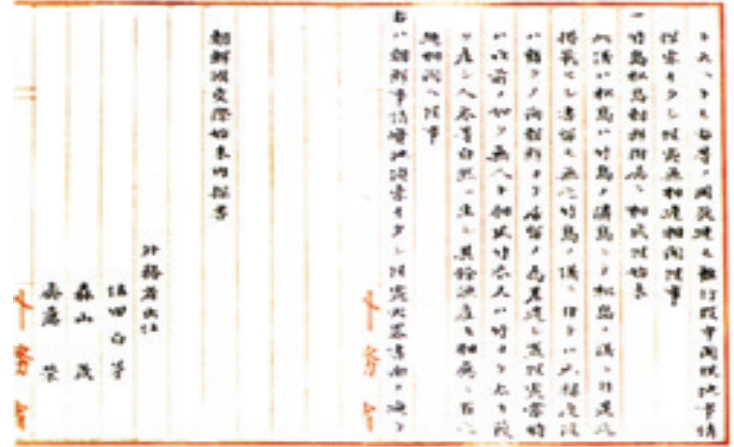 探索イタシ候実無相違相聞候事
一竹島松島朝鮮附属ニ相成候始末
此儀ハ松島ハ竹島ノ隣島ニテ松島ノ儀ニ付是迄
掲載セシ書留モ無之竹島ノ儀ニ付テハ元禄度後
ハ暫クノ間朝鮮ヨリ居留ノ為差遣シ置候処当時
ハ以前ノ如ク無人ト相成竹木又ハ竹ヨリ太キ葭
ヲ産シ人参等自然ニ生シ其余漁産モ相応ニ有之
趣相聞ヘ候事
右ハ朝鮮事情実地偵索イタシ候処大略書面ノ通リ
外務省
朝鮮國交際始末内探書
外務省出仕
佐田白茅
森山 茂
斎藤 榮
外務省